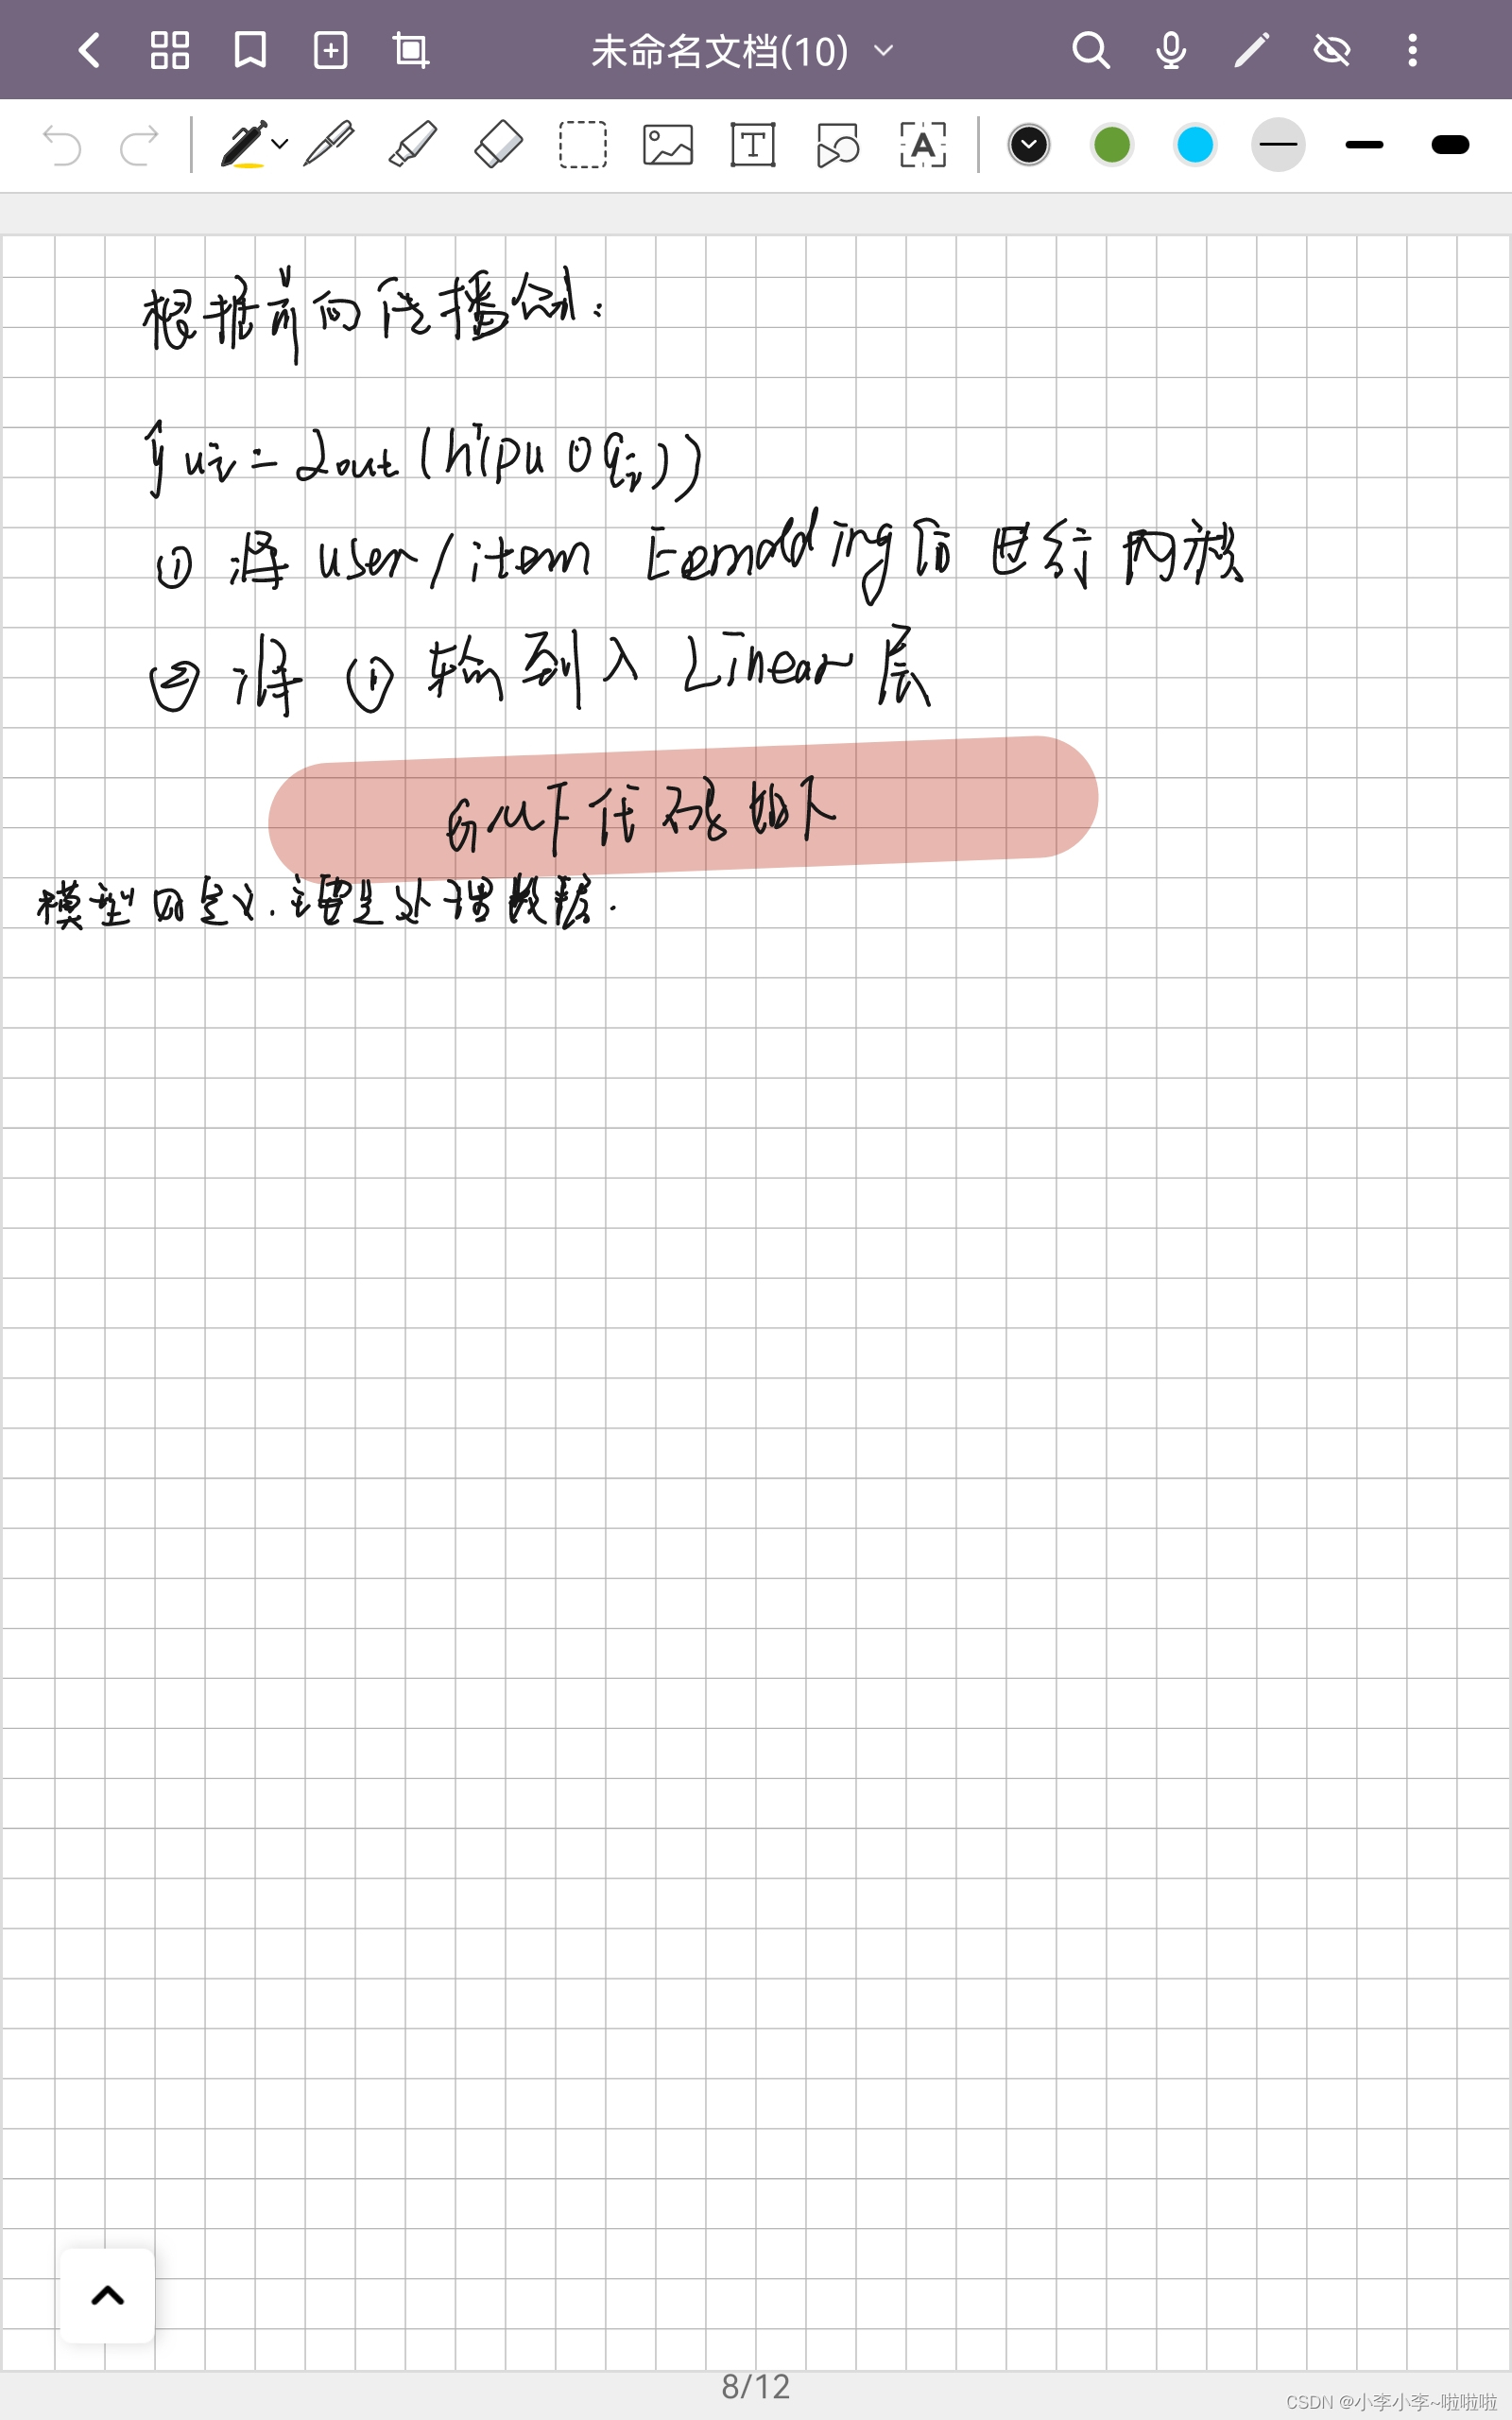 未命名文档(10)
T
A
根据前向传播公式:
ŷui = aout(hᵀ(pu⊙qi))
① 将user/item Eemdding后进行内积
② 将①输到入Linear层
GMF代码如下
模型的定义.主要是处理数据.
8/12
CSDN @小李小李~啦啦啦